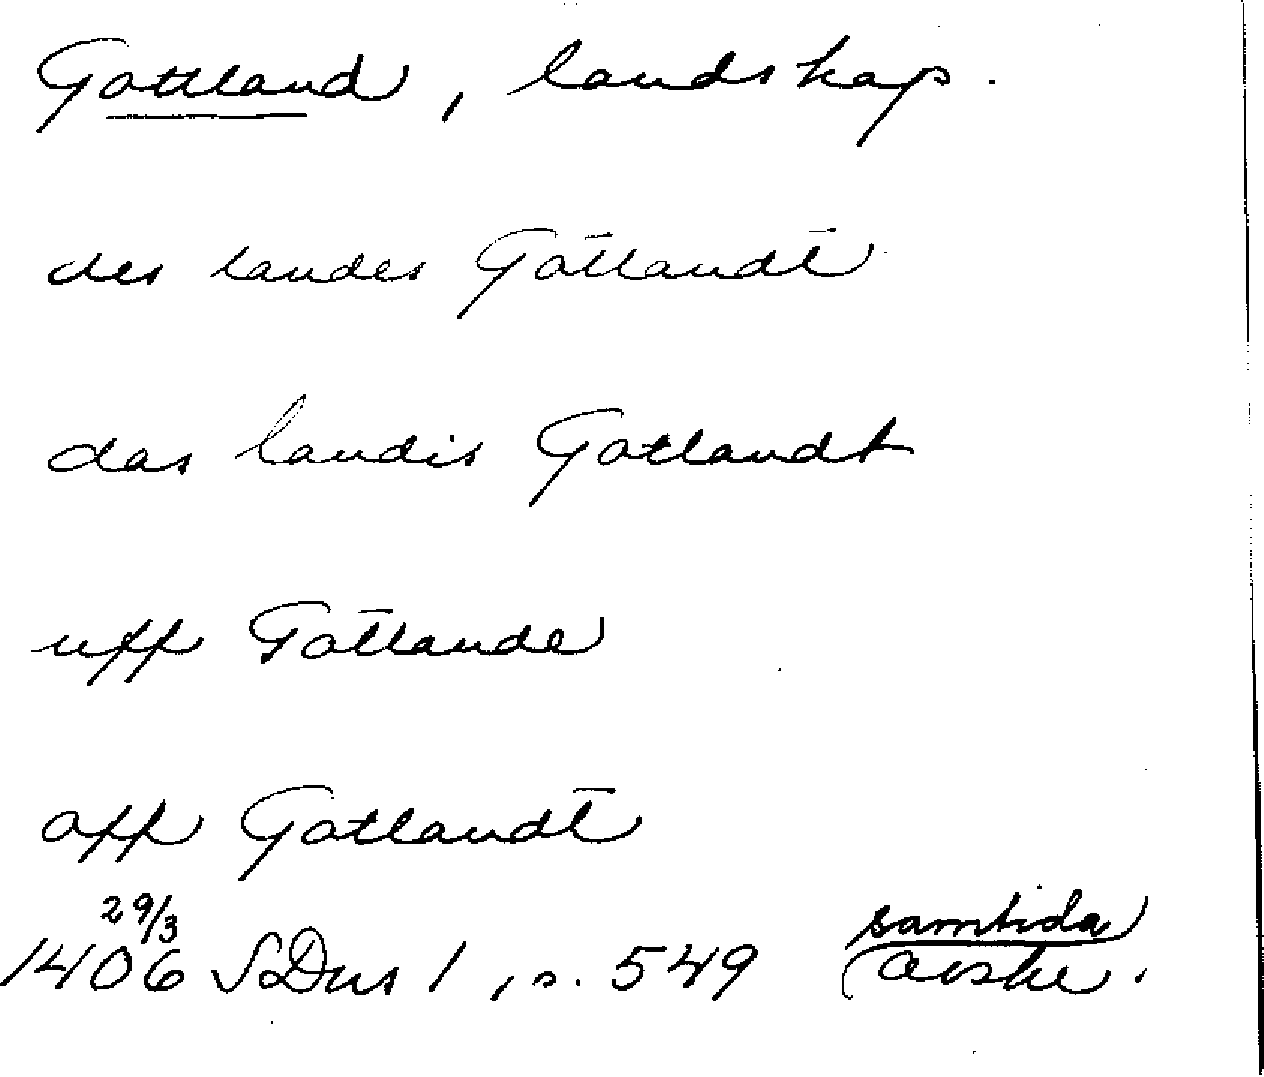 Gottland, landskap.
des landes Gotlandt
das landis Gotlandt
uff Gotlande
off Gotlandt
29/3
1406 SDns 1, s. 549 (samtida
avskr.